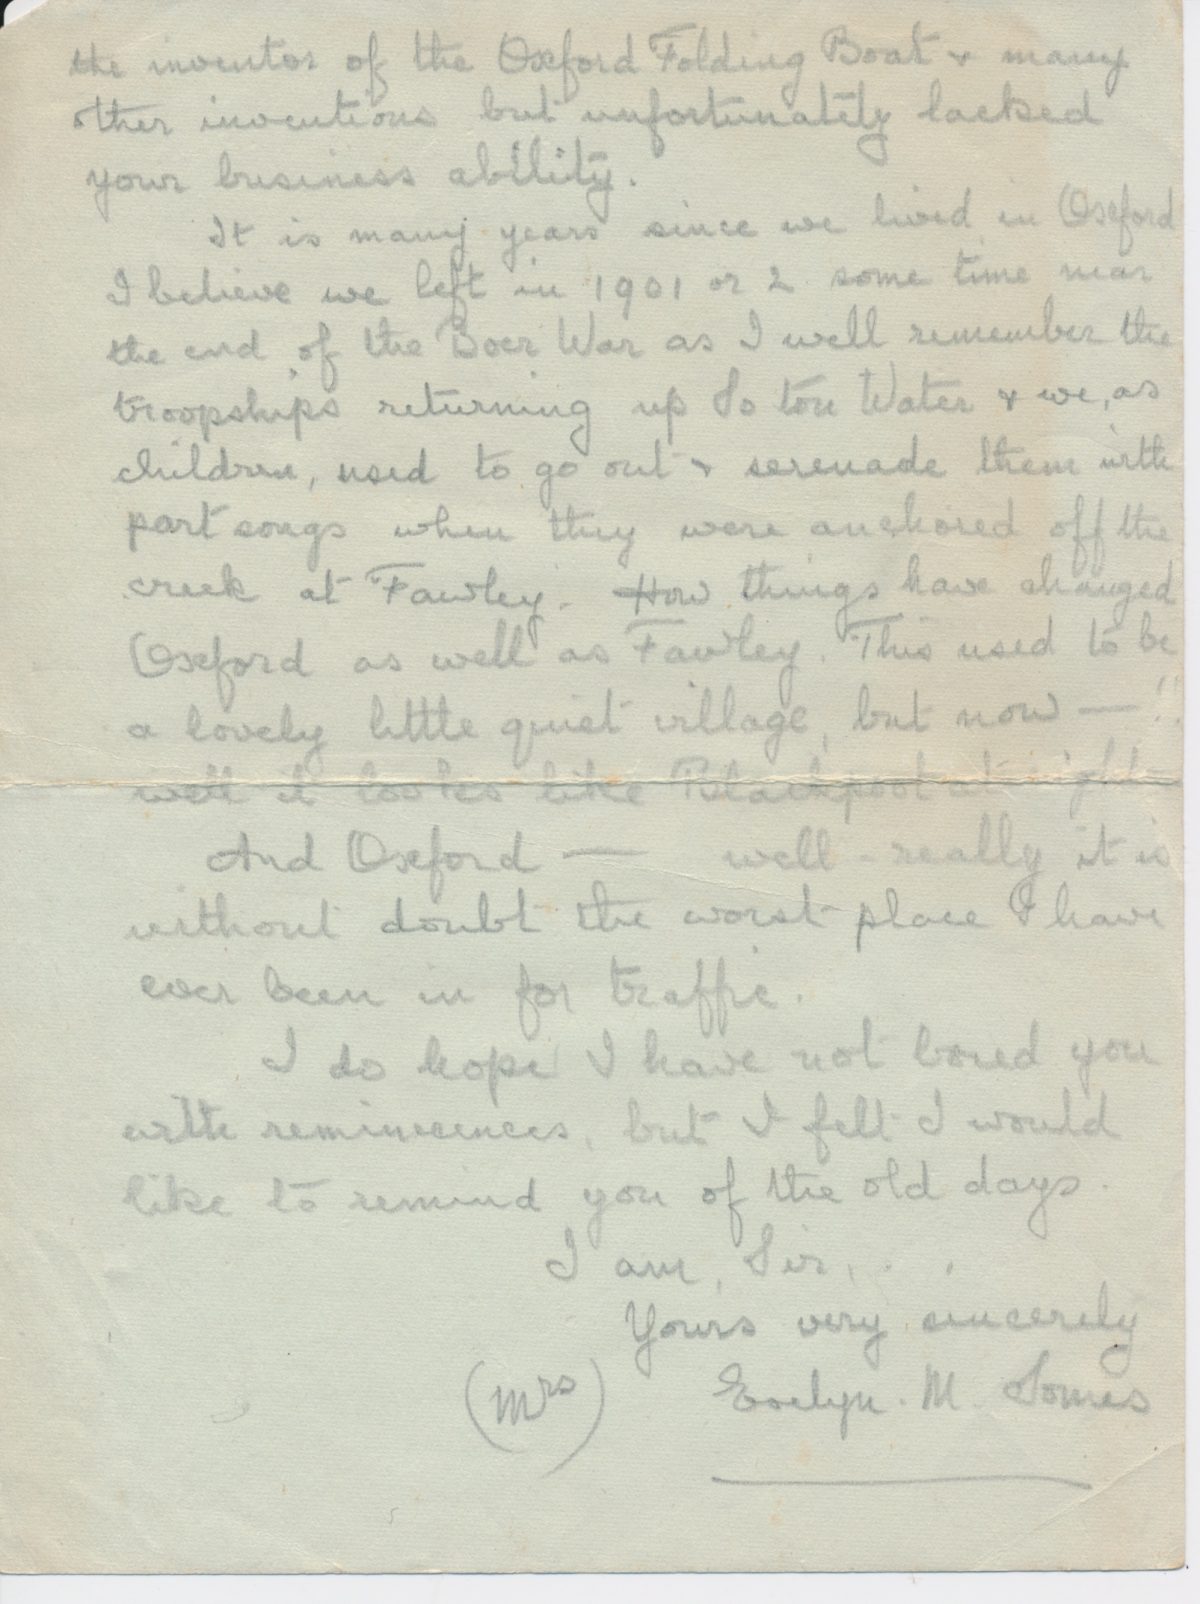 the inventor of the Oxford Folding Boat & many
other inventions but unfortunately lacked
your business ability.
It is many years since we lived in Oxford
I believe we left in 1901 or 2 some time near
the end of the Boer War as I well remember the
troopships returning up So'ton Water & we, as
children, used to go out & serenade them with
part songs when they were anchored off the
creek at Fawley. How things have changed
Oxford as well as Fawley. This used to be
a lovely little quiet village, but now — !!
well it looks like Blackpool at night
And Oxford — well – really it is
without doubt the worst place I have
ever been in for traffic.
I do hope I have not bored you
with reminecences, but I felt I would
like to remind you of the old days.
I am, Sir,
Yours very sincerely
(Mrs) Evelyn. M.